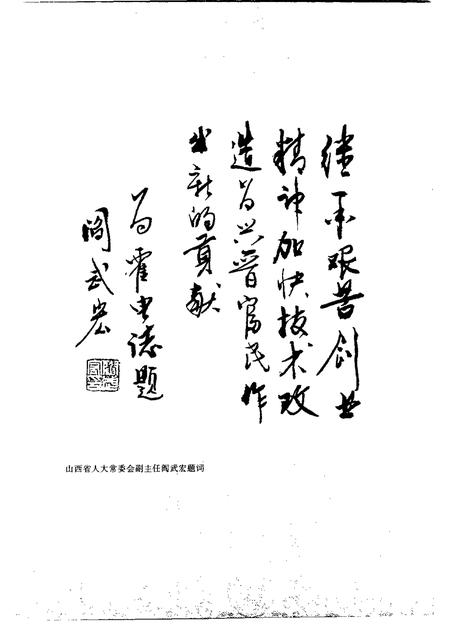 继承艰苦创业
精神加快技术改
造为兴晋富民作
出新的贡献
为霍电志题
阎武宏
山西省人大常委会副主任阎武宏题词